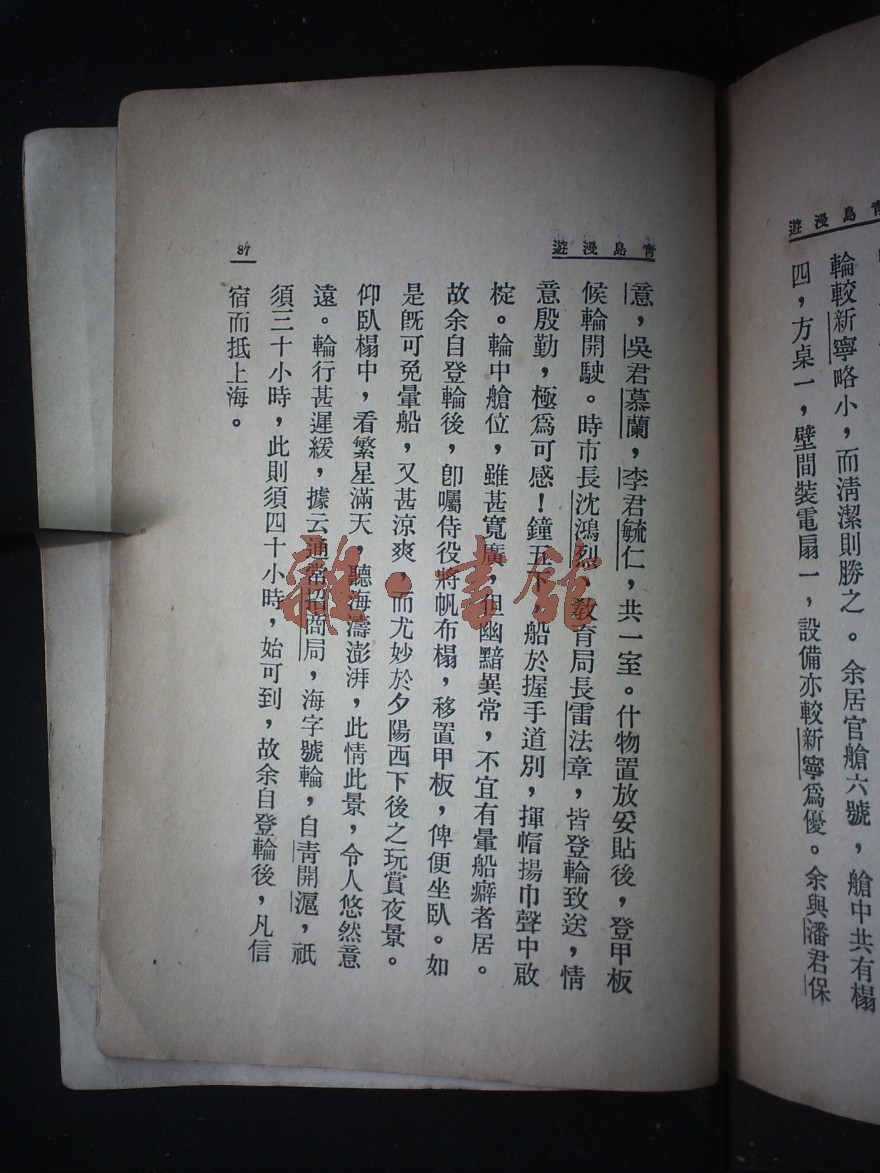 青島漫遊
輪較新寧略小，而清潔則勝之。余居官艙六號，艙中共有榻
四，方桌一，壁間裝電扇一，設備亦較新寧爲優。余與潘君保
青島漫遊
意，吳君慕蘭，李君毓仁，共一室。什物置放妥貼後，登甲板
候輪開駛。時市長沈鴻烈，教育局長雷法章，皆登輪致送，情
意殷勤，極爲可感！鐘五下，船於握手道別，揮帽揚巾聲中啟
椗。輪中艙位，雖甚寬廣，但幽黯異常，不宜有暈船癖者居。
故余自登輪後，卽囑侍役將帆布榻，移置甲板，俾便坐臥。如
是旣可免暈船，又甚涼爽，而尤妙於夕陽西下後之玩賞夜景。
仰臥榻中，看繁星滿天，聽海濤澎湃，此情此景，令人悠然意
遠。輪行甚遲緩，據云通常招商局，海字號輪，自青開滬，祇
須三十小時，此則須四十小時，始可到，故余自登輪後，凡信
宿而抵上海。
87
雜·書館